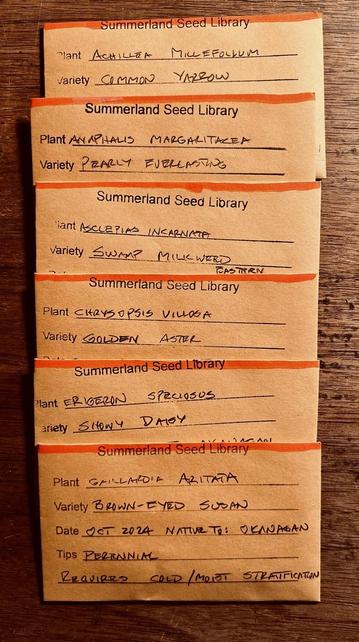 Summerland Seed Library
Plant ACHILLEA MILLEFOLIUM
Variety COMMON YARROW
Summerland Seed Library
Plant ANAPHALIS MARGARITACEA
Variety PEARLY EVERLASTING
Summerland Seed Library
Plant ASCLEPIAS INCARNATA
Variety SWAMP MILKWEED
EASTERN
Summerland Seed Library
Plant CHRYSOPSIS VILLOSA
Variety GOLDEN ASTER
Summerland Seed Library
Plant ERIGERON SPECIOSUS
Variety SHOWY DAISY
OKANAGAN
Summerland Seed Library
Plant GAILLARDIA ARITATA
Variety BROWN-EYED SUSAN
Date OCT 2024 NATIVE TO: OKANAGAN
Tips PERENNIAL
REQUIRES COLD/MOIST STRATIFICATION